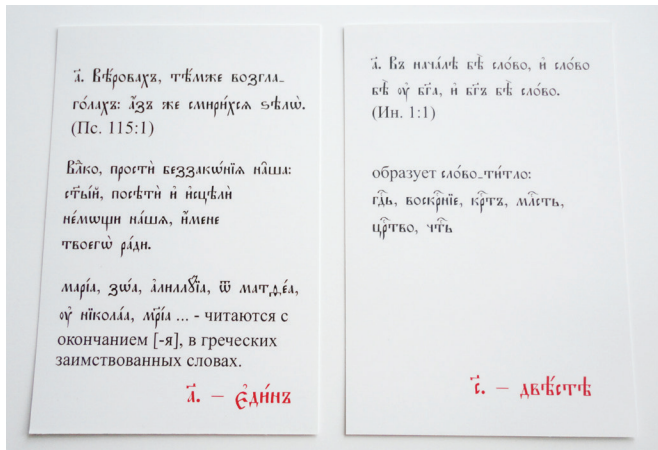 а҃. Вѣ́ровахъ, тѣ́мже возгла-
го́лахъ: а҆́зъ же смири́хсѧ ѕѣлѡ̀.
(Пс. 115:1)
Влⷣко, простѝ беззакѡ́нїѧ на̑ша:
ст҃ы́й, посѣтѝ и҆ и҆сцѣлѝ
не́мѡщи на́шѧ, и҆́мене
твоегѡ̀ ра́ди.
марі́а, зѡ́а, а҆ллилꙋ́їа, ѿ матѳе́а,
ᲂу҆ нїкола́а, мр҃і́а ... - читаются с
окончанием [-я], в греческих
заимствованных словах.
а҃. — є҆ди́нъ
а҃. Въ нача́лѣ бѣ̀ сло́во, и҆ сло́во
бѣ̀ ᲂу҆ бг҃а, и҆ бг҃ъ бѣ̀ сло́во.
(Ин. 1:1)
образует сло́во-ти́тло:
гдⷭ҇ь, воскрⷭ҇нїе, крⷭ҇тъ, млⷭ҇ть,
црⷭ҇тво, чтⷭ҇ь
с҃. — двѣ́стѣ